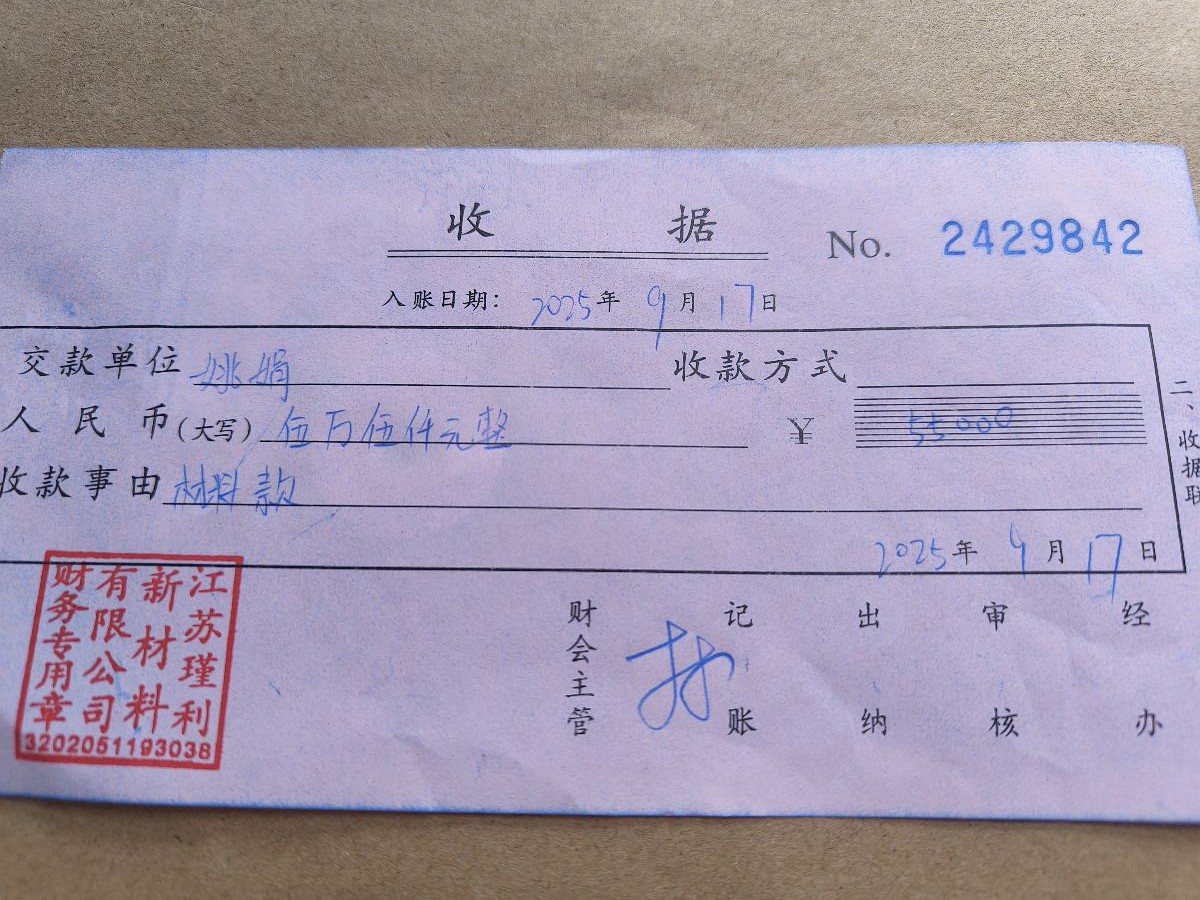 收据
No. 2429842
入账日期： 2025年 9月 17日
交款单位 姚娟 收款方式
人民币(大写) 伍万伍仟元整 ¥ 55000
收款事由 材料款
2025年 9月 17日
二、收据联
财会主管 记账 出纳 审核 经办
江苏瑾利
新材料
有限公司
财务专用章
3202051193038